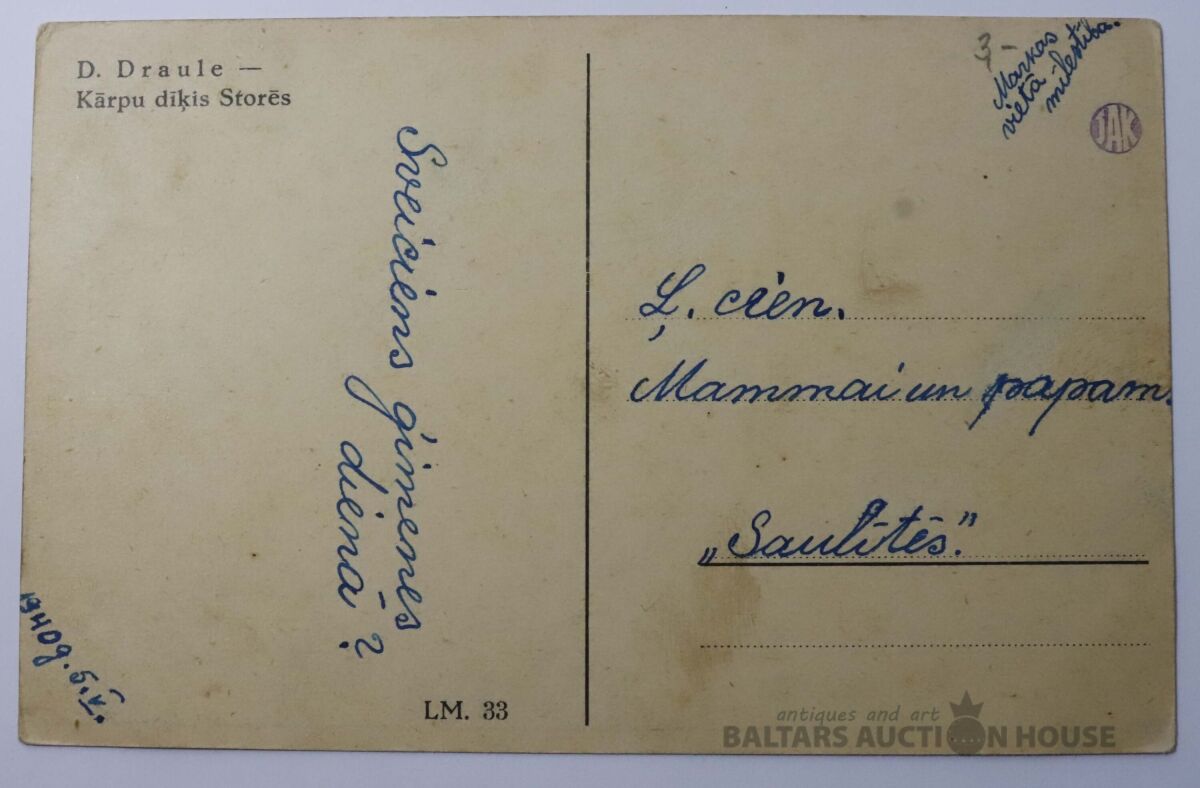 D. Draule —
Kārpu dīķis Storēs
Sveiciens ģimenes
dienā?
LM. 33
3-
Markas
vietā
mīlestība.
JAK
Ļ. cien.
Mammai un papam.
„Saulītēs."
antiques and art
BALTARS AUCTION HOUSE